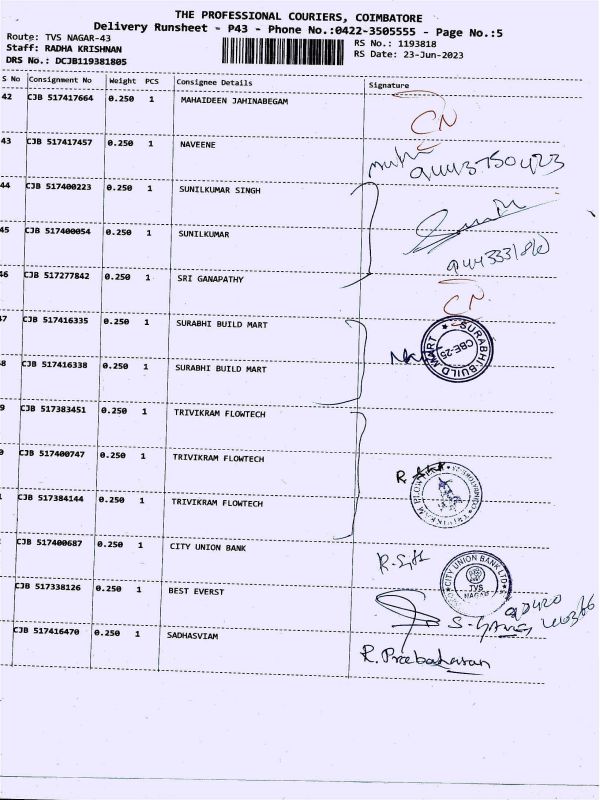 THE PROFESSIONAL COURIERS, COIMBATORE
Delivery Runsheet - P43 - Phone No.:0422-3505555 - Page No.:5
Route: TVS NAGAR-43
RS No.: 1193818
Staff: RADHA KRISHNAN
RS Date: 23-Jun-2023
DRS No.: DCJB119381805
S No Consignment No Weight PCS Consignee Details Signature
42 CJB 517417664 0.250 1 MAHAIDEEN JAHINABEGAM
CN
43 CJB 517417457 0.250 1 NAVEENE
44 CJB 517400223 0.250 1 SUNILKUMAR SINGH
45 CJB 517400054 0.250 1 SUNILKUMAR
46 CJB 517277842 0.250 1 SRI GANAPATHY
CN
7 CJB 517416335 0.250 1 SURABHI BUILD MART
SURABHI-BUILD MART
CBE-25
8 CJB 517416338 0.250 1 SURABHI BUILD MART
9 CJB 517383451 0.250 1 TRIVIKRAM FLOWTECH
0 CJB 517400747 0.250 1 TRIVIKRAM FLOWTECH
CJB 517384144 0.250 1 TRIVIKRAM FLOWTECH
CJB 517400687 0.250 1 CITY UNION BANK
CITY UNION BANK LTD
TVS NAGAR
CJB 517338126 0.250 1 BEST EVERST
CJB 517416470 0.250 1 SADHASVIAM
R. Prabaharan